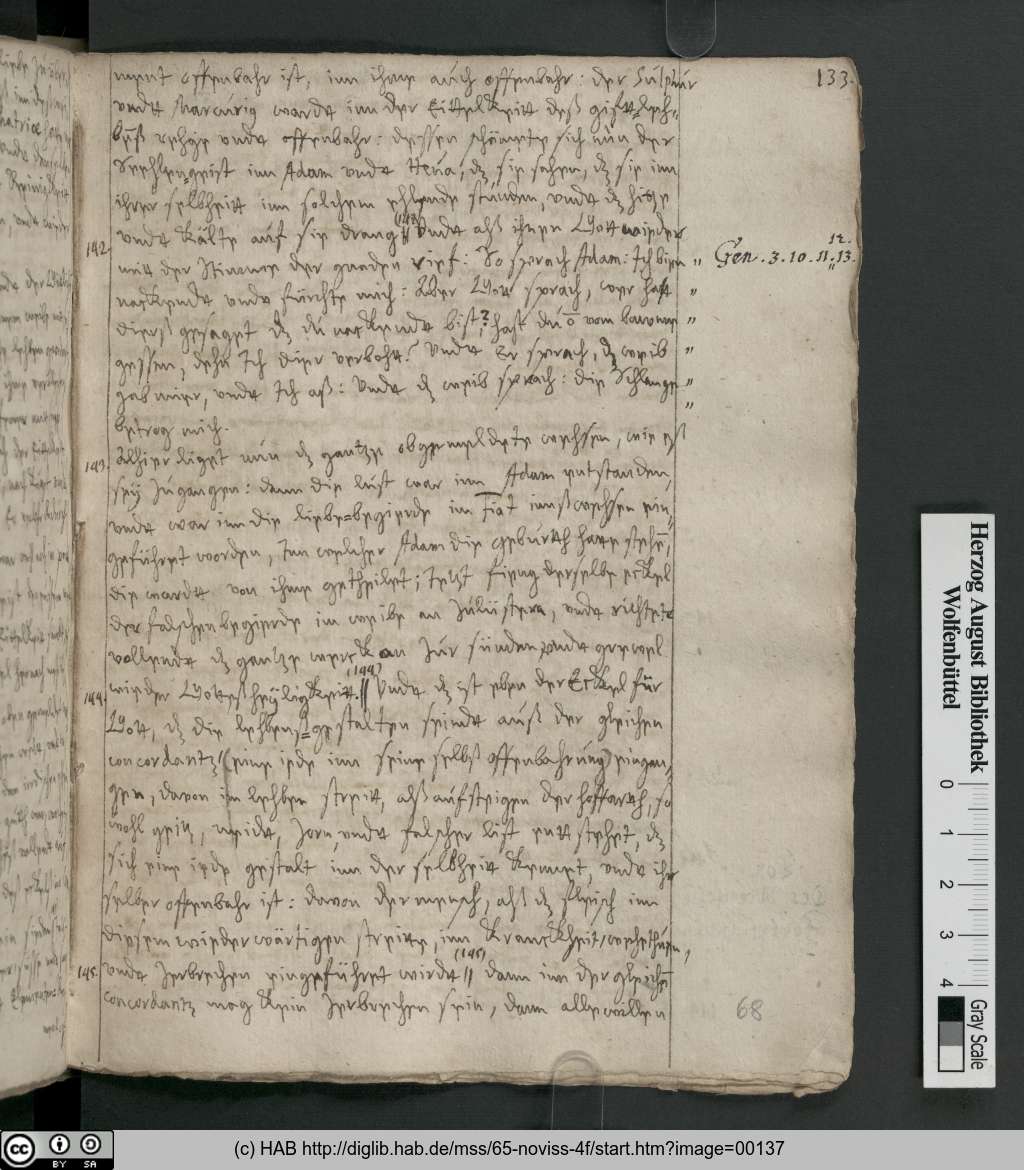 133.
ment offenbahr ist, inn ihme auch offenbahr: der Sulphur
undt Marcurig wardt inn der Eittelkeitt deß gifft=leh=
benß rehge undt offenbahr: dessen schämpte sich nun der
Seehlengeist inn Adam undt Heua, dz sie sahen, dz sie inn
ihrer selbheitt inn solchem ehlende stunden, undt dz hitze
142. undt kälte auf sie drang (142) // Undt alß ihnen Gott wieder
mitt der Stimme der gnaden rief: So sprach Adam: Ich bien " Gen. 3. 10. 11. 12. 13.
nackendt undt fürchte mich: Aber Gott sprach, wer hatt "
dierß gesaget dz du nackendt bist? hast du vom baume "
gessen, dehn Ich dier verboht? Undt Er sprach, dz weib "
gab mier, undt Ich aß: Undt dz weib sprach: die Schlange "
betrog mich. "
143. Alhier liget nun dz gantze obgemeldete wehsen, wie eß
seÿ zugangen: dann die lust war inn Adam entstanden,
undt war inn die liebe=begierde im Fiat innß wehsen ein=
geführet worden, Inn welcher Adam die geburth hatte stehn,
die wardt von ihme getheilet; Itzt fieng derselbe eckel
der falschen begierde im weibe an zulüstern, undt richtete
vollendt dz gantze werck an zur sünden undt grewel
144. wieder Gotteß heÿligkeitt. (144) // Undt dz ist eben der Eckel für
Gott, dz die lehbenß=gestalten seindt auß der gleichen
concordantz (eine iede inn seine selbß offenbahrung) eingan=
gen, davon im lehben streitt, alß aufsteigen der hoffarth, so
wohl geitz, neidt, zorn, undt falscher list entstehet, dz
sich eine iede gestalt inn der selbheitt kennet, undt ihr
selber offenbahr ist: davon der mensch, alß dz fleisch inn
diesem wiederwärtigen streitte, inn kranckheit, wehethuen,
145. undt zerbrechen eingeführet wirdt (145) // dann inn der gleichen
concordantz mag kein zerbrechen sein, dann alle willen
68
Herzog August Bibliothek
Wolfenbüttel
0 1 2 3 4
Gray Scale
cc BY SA
(c) HAB http://diglib.hab.de/mss/65-noviss-4f/start.htm?image=00137